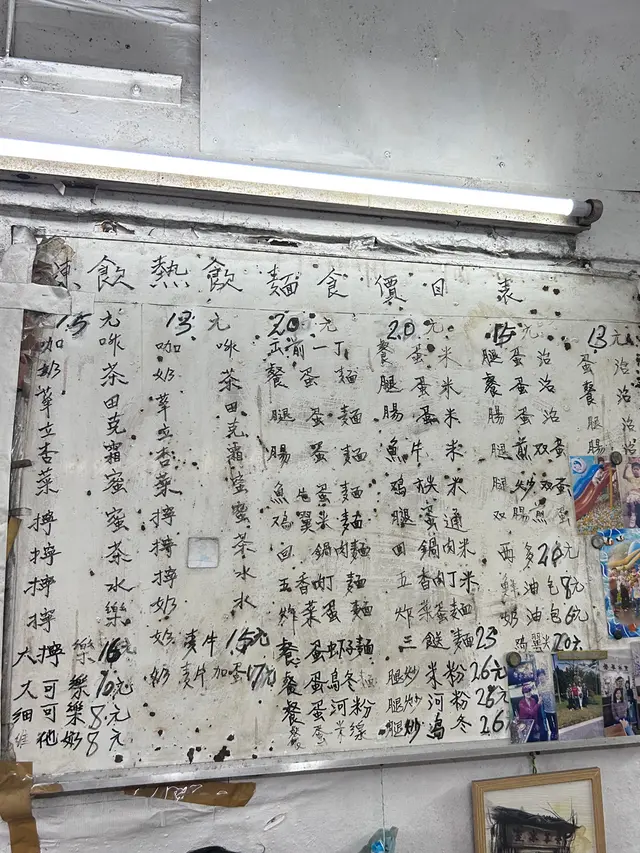 凍飲 熱飲 麵食價目表
15元
咖啡
奶茶
華田
立克
杏霜
菜蜜
檸蜜
檸茶
檸水
檸樂
大檸樂16元
大可樂10元
細可樂8元
維他奶8元
13元
咖啡
奶茶
華田
立克
杏霜
菜蜜
檸蜜
檸茶
檸水
奶水
奶麥牛15元
奶麥片加蛋17元
20元
前一丁
餐蛋麵
腿蛋麵
腸蛋麵
魚蛋麵
鸡翼麵
回鍋肉麵
五香肉丁麵
炸菜蛋麵
餐蛋蝦子麵
餐蛋烏冬
餐蛋河粉
餐蛋米線
20元
餐蛋米
腿蛋米
腸蛋米
魚牛米
鸡米
腿蛋通
回鍋肉米
五香肉丁米
炸菜蛋麵
三餸麵23
腿炒米粉26元
腿炒河粉26元
腿炒烏冬26
15元
腿蛋治
餐蛋治
腸蛋治
腿煎双蛋
腿炒双蛋
双腸煎蛋
再多20元
鮮油包8元
奶油包6元
鸡翼米20元
13元
蛋治
餐治
腿治
腸治